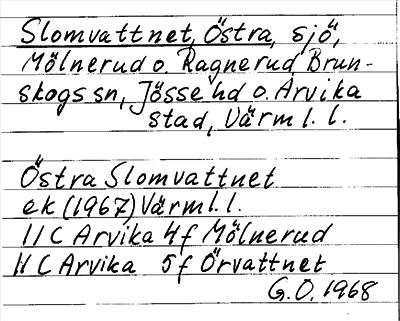 Slomvattnet, Östra, sjö,
Mölnerud o. Ragnerud Brun-
skogs sn, Jösse hd o. Arvika
stad, Värml. l.
Östra Slomvattnet
ek (1967) Värml. l.
11 C Arvika 4f Mölnerud
11 C Arvika 5f Örvattnet
G.O. 1968